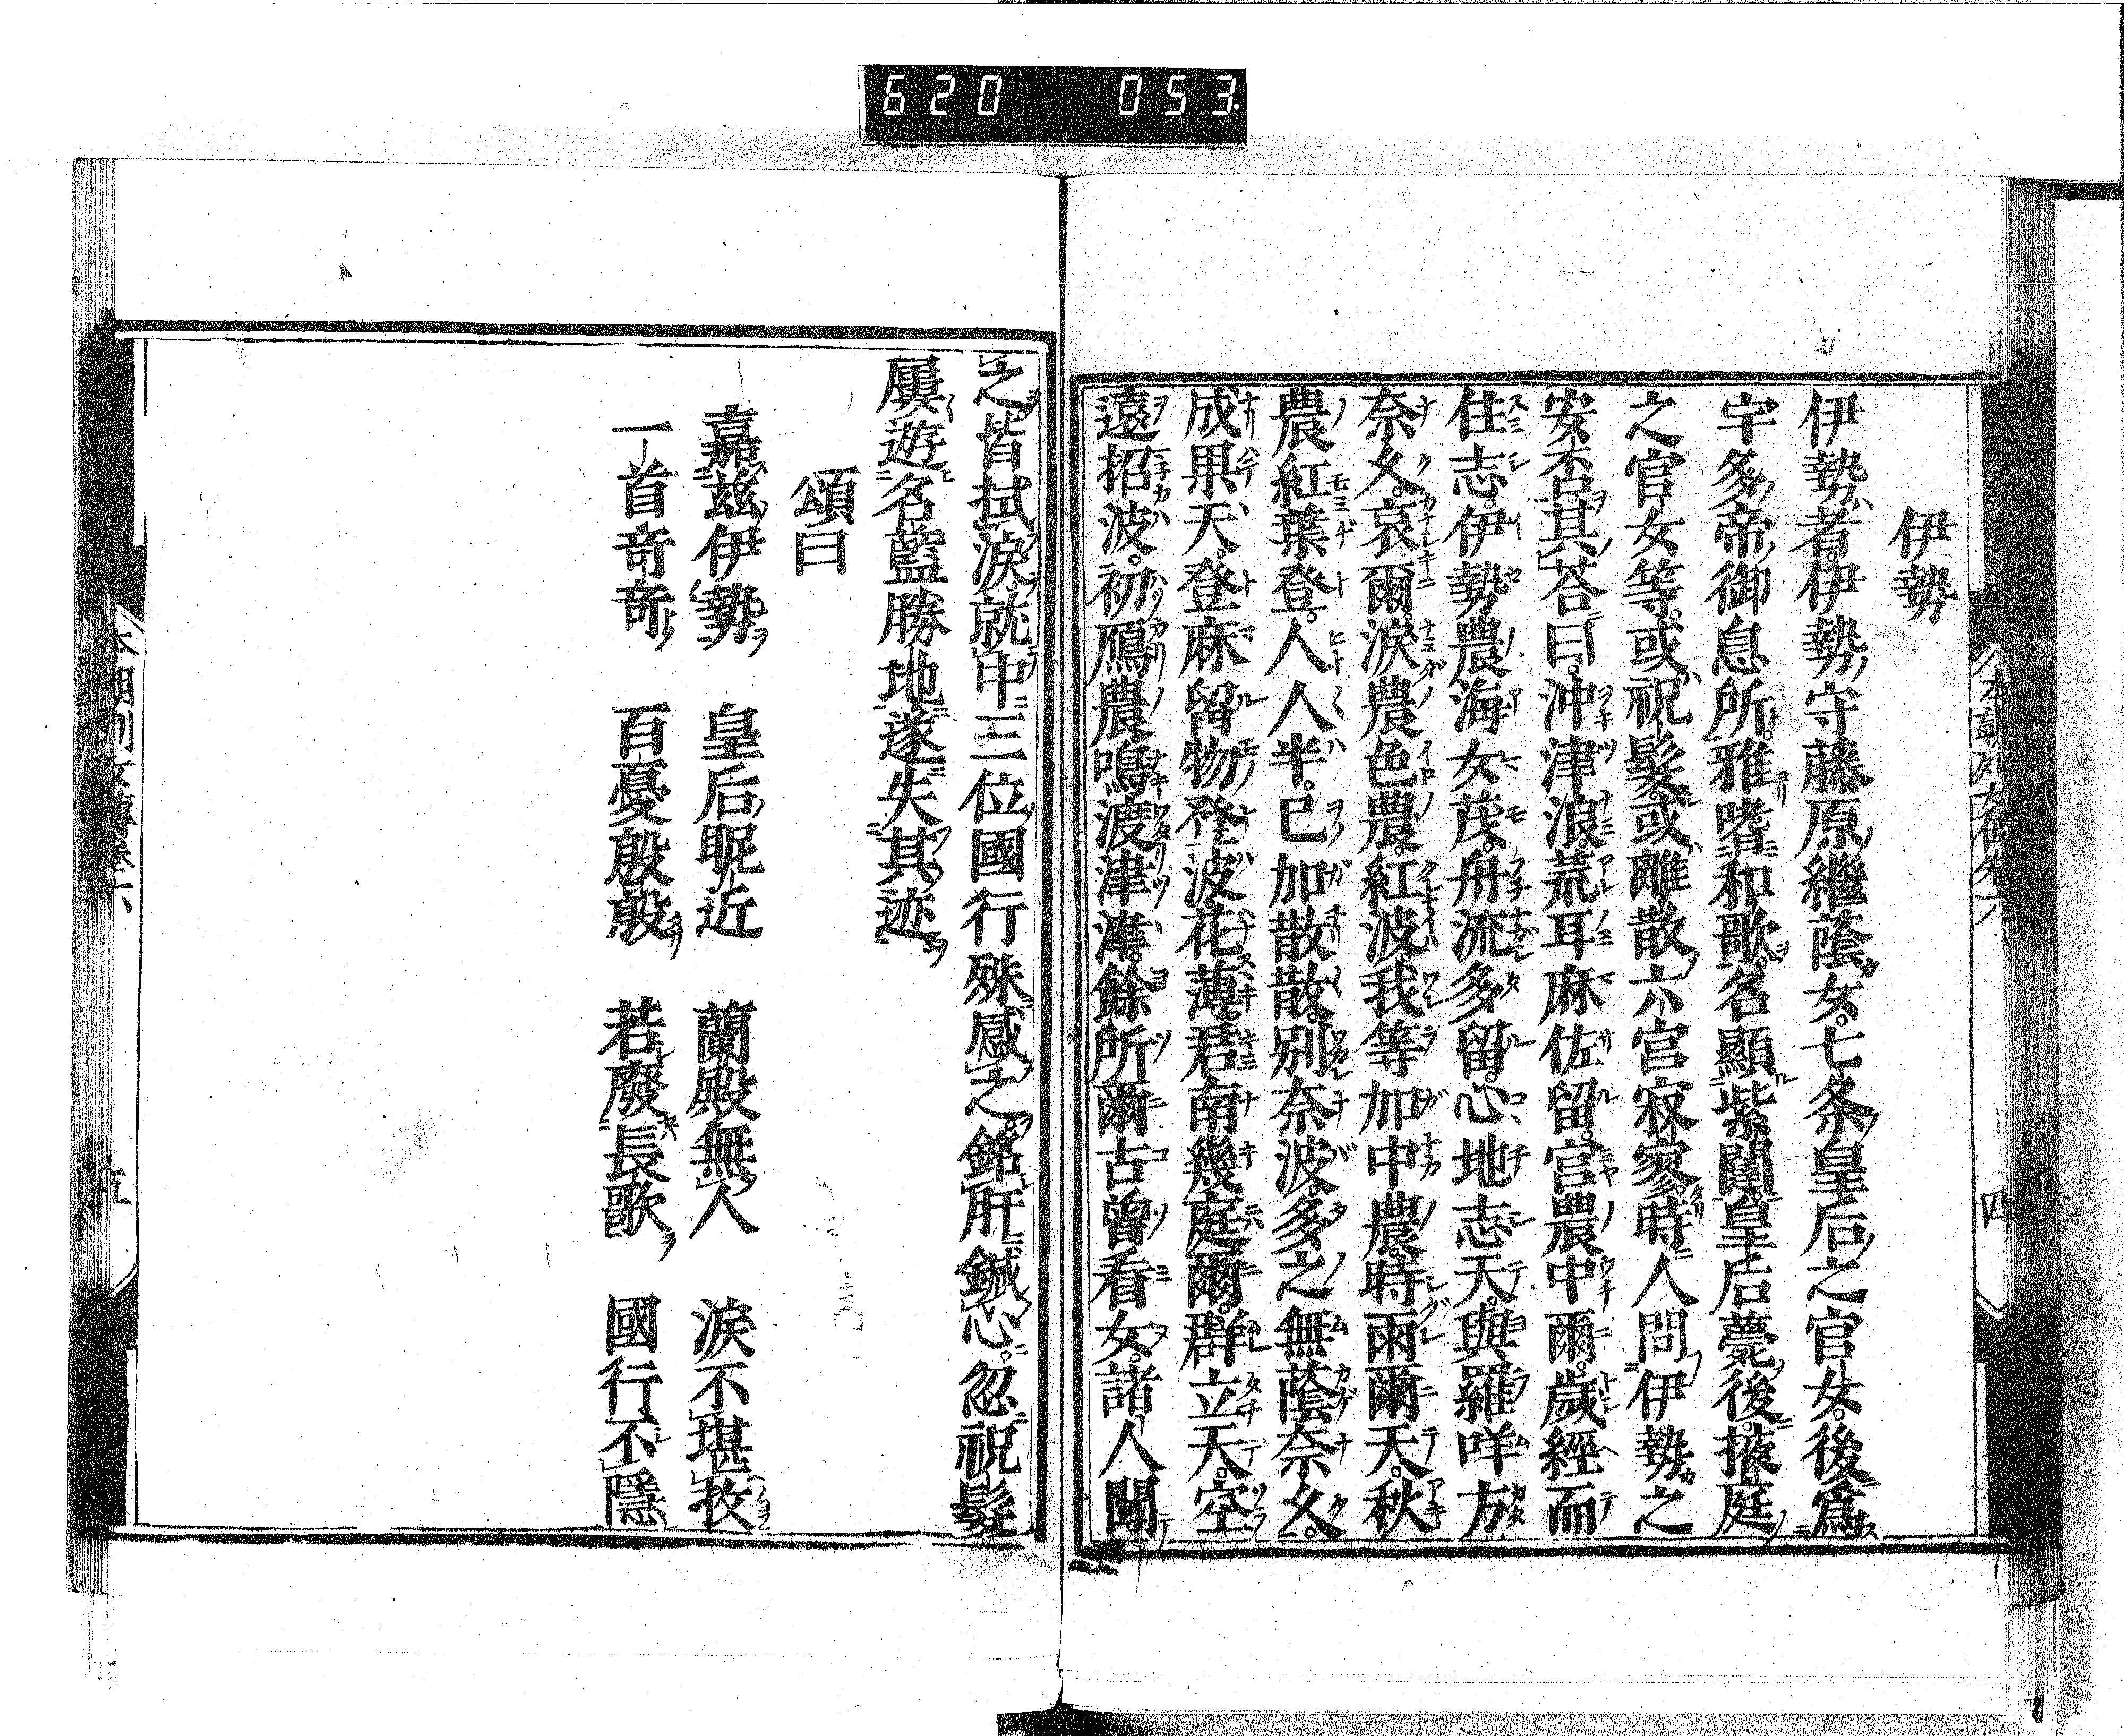 620 053
本朝列女傳卷六
四
伊勢
伊勢者伊勢守藤原繼蔭女七条皇后之官女後爲
宇多帝御息所雅嗜和歌名顯紫闈皇后薨後掖庭
之官女等或祝髮或離散六宮寂寥時人問伊勢之
安否其荅曰沖津浪荒耳麻佐留宮農中爾歲經而
住志伊勢農海女茂舟流多留心地志天與羅咩方
奈久哀爾淚農色農紅波我等加中農時雨爾天秋
農紅葉登人人半己加散散別奈波多之無蔭奈久
成果天登麻留物登波花薄君南幾庭爾群立天空
遠招波初鴈農鳴渡津濂餘所爾古曾看女諸人聞
之皆拭淚就中三位國行殊感之銘肝鍼心忽祝髮
屢遊名藍勝地遂失其迹
頌曰
嘉茲伊勢 皇后昵近 蘭殿無人 淚不堪抆
一首奇奇 百憂殷殷 若廢長歌 國行不隱
本朝列女傳卷六
五